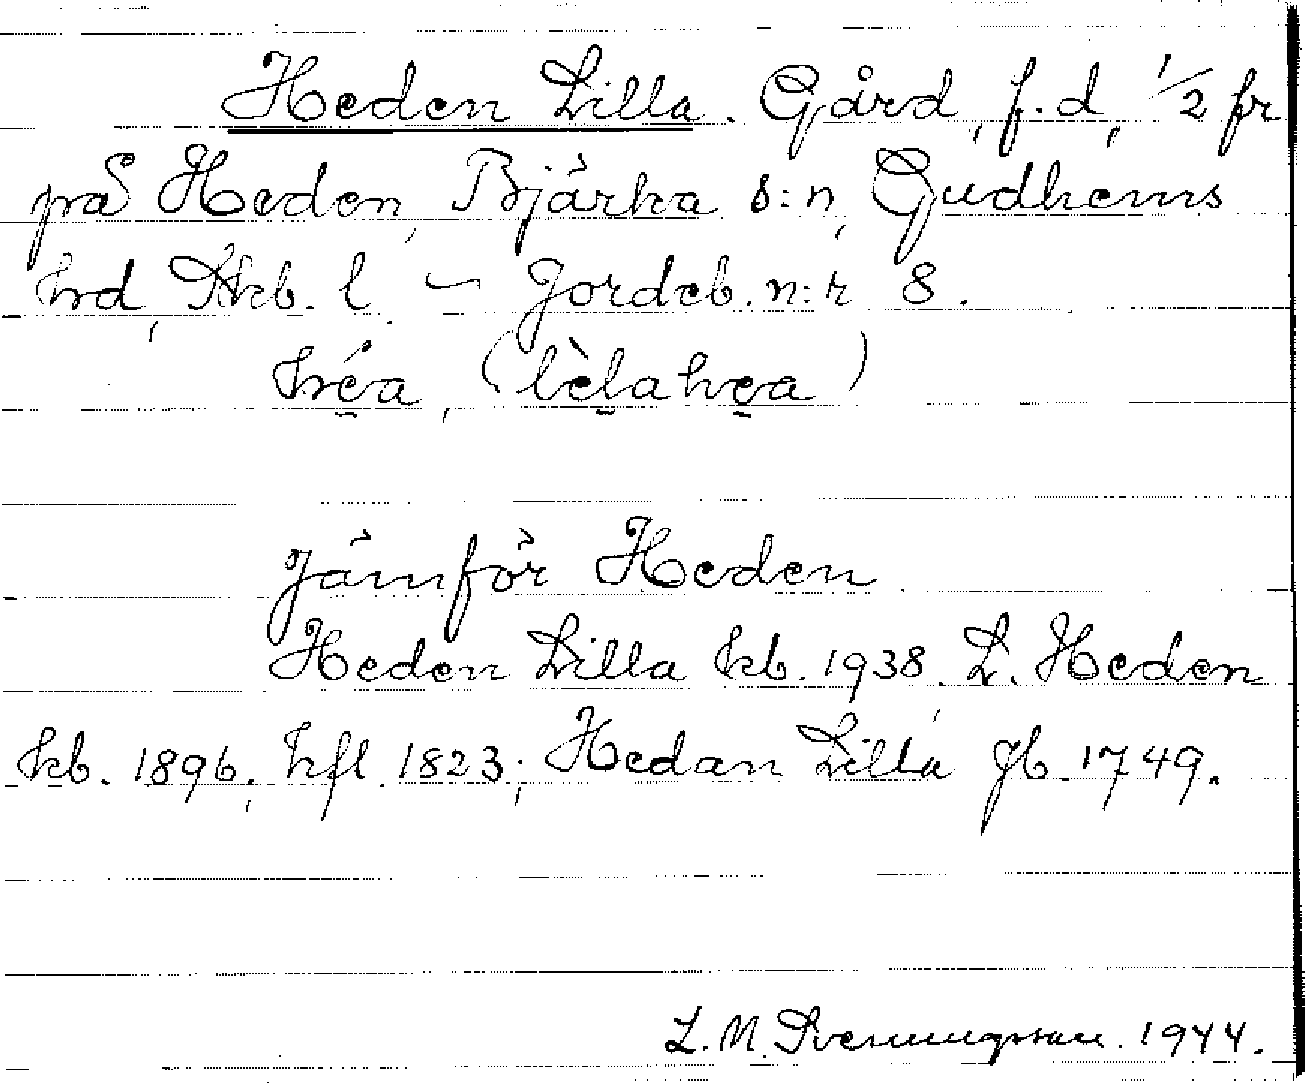 Heden Lilla. Gård, f. d, 1/2 fr
på Heden, Bjärka s:n, Gudhems
hrd, Skb. l. – Jordeb. n:r 8.
héa, (lèlahea)
Jämför Heden
Heden Lilla kb. 1938, L. Heden
kb. 1896, hfl. 1823; Hedan Lilla Jb. 1749.
L. M. Svenungsson. 1944.